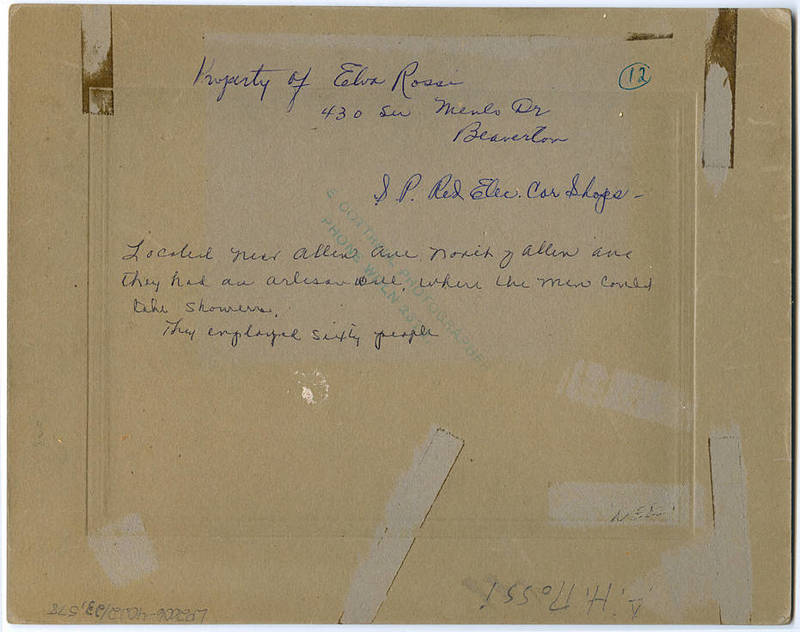 Property of Elva Rossi
12
430 SW Menlo Dr
Beaverton
S P. Red Elec. Car Shops -
Located near Allen Ave North of Allen ave
they had an artesian well, where the men could
take showers.
They employed sixty people
PHOTOGRAPHER
PHONE
A. H. Rossi